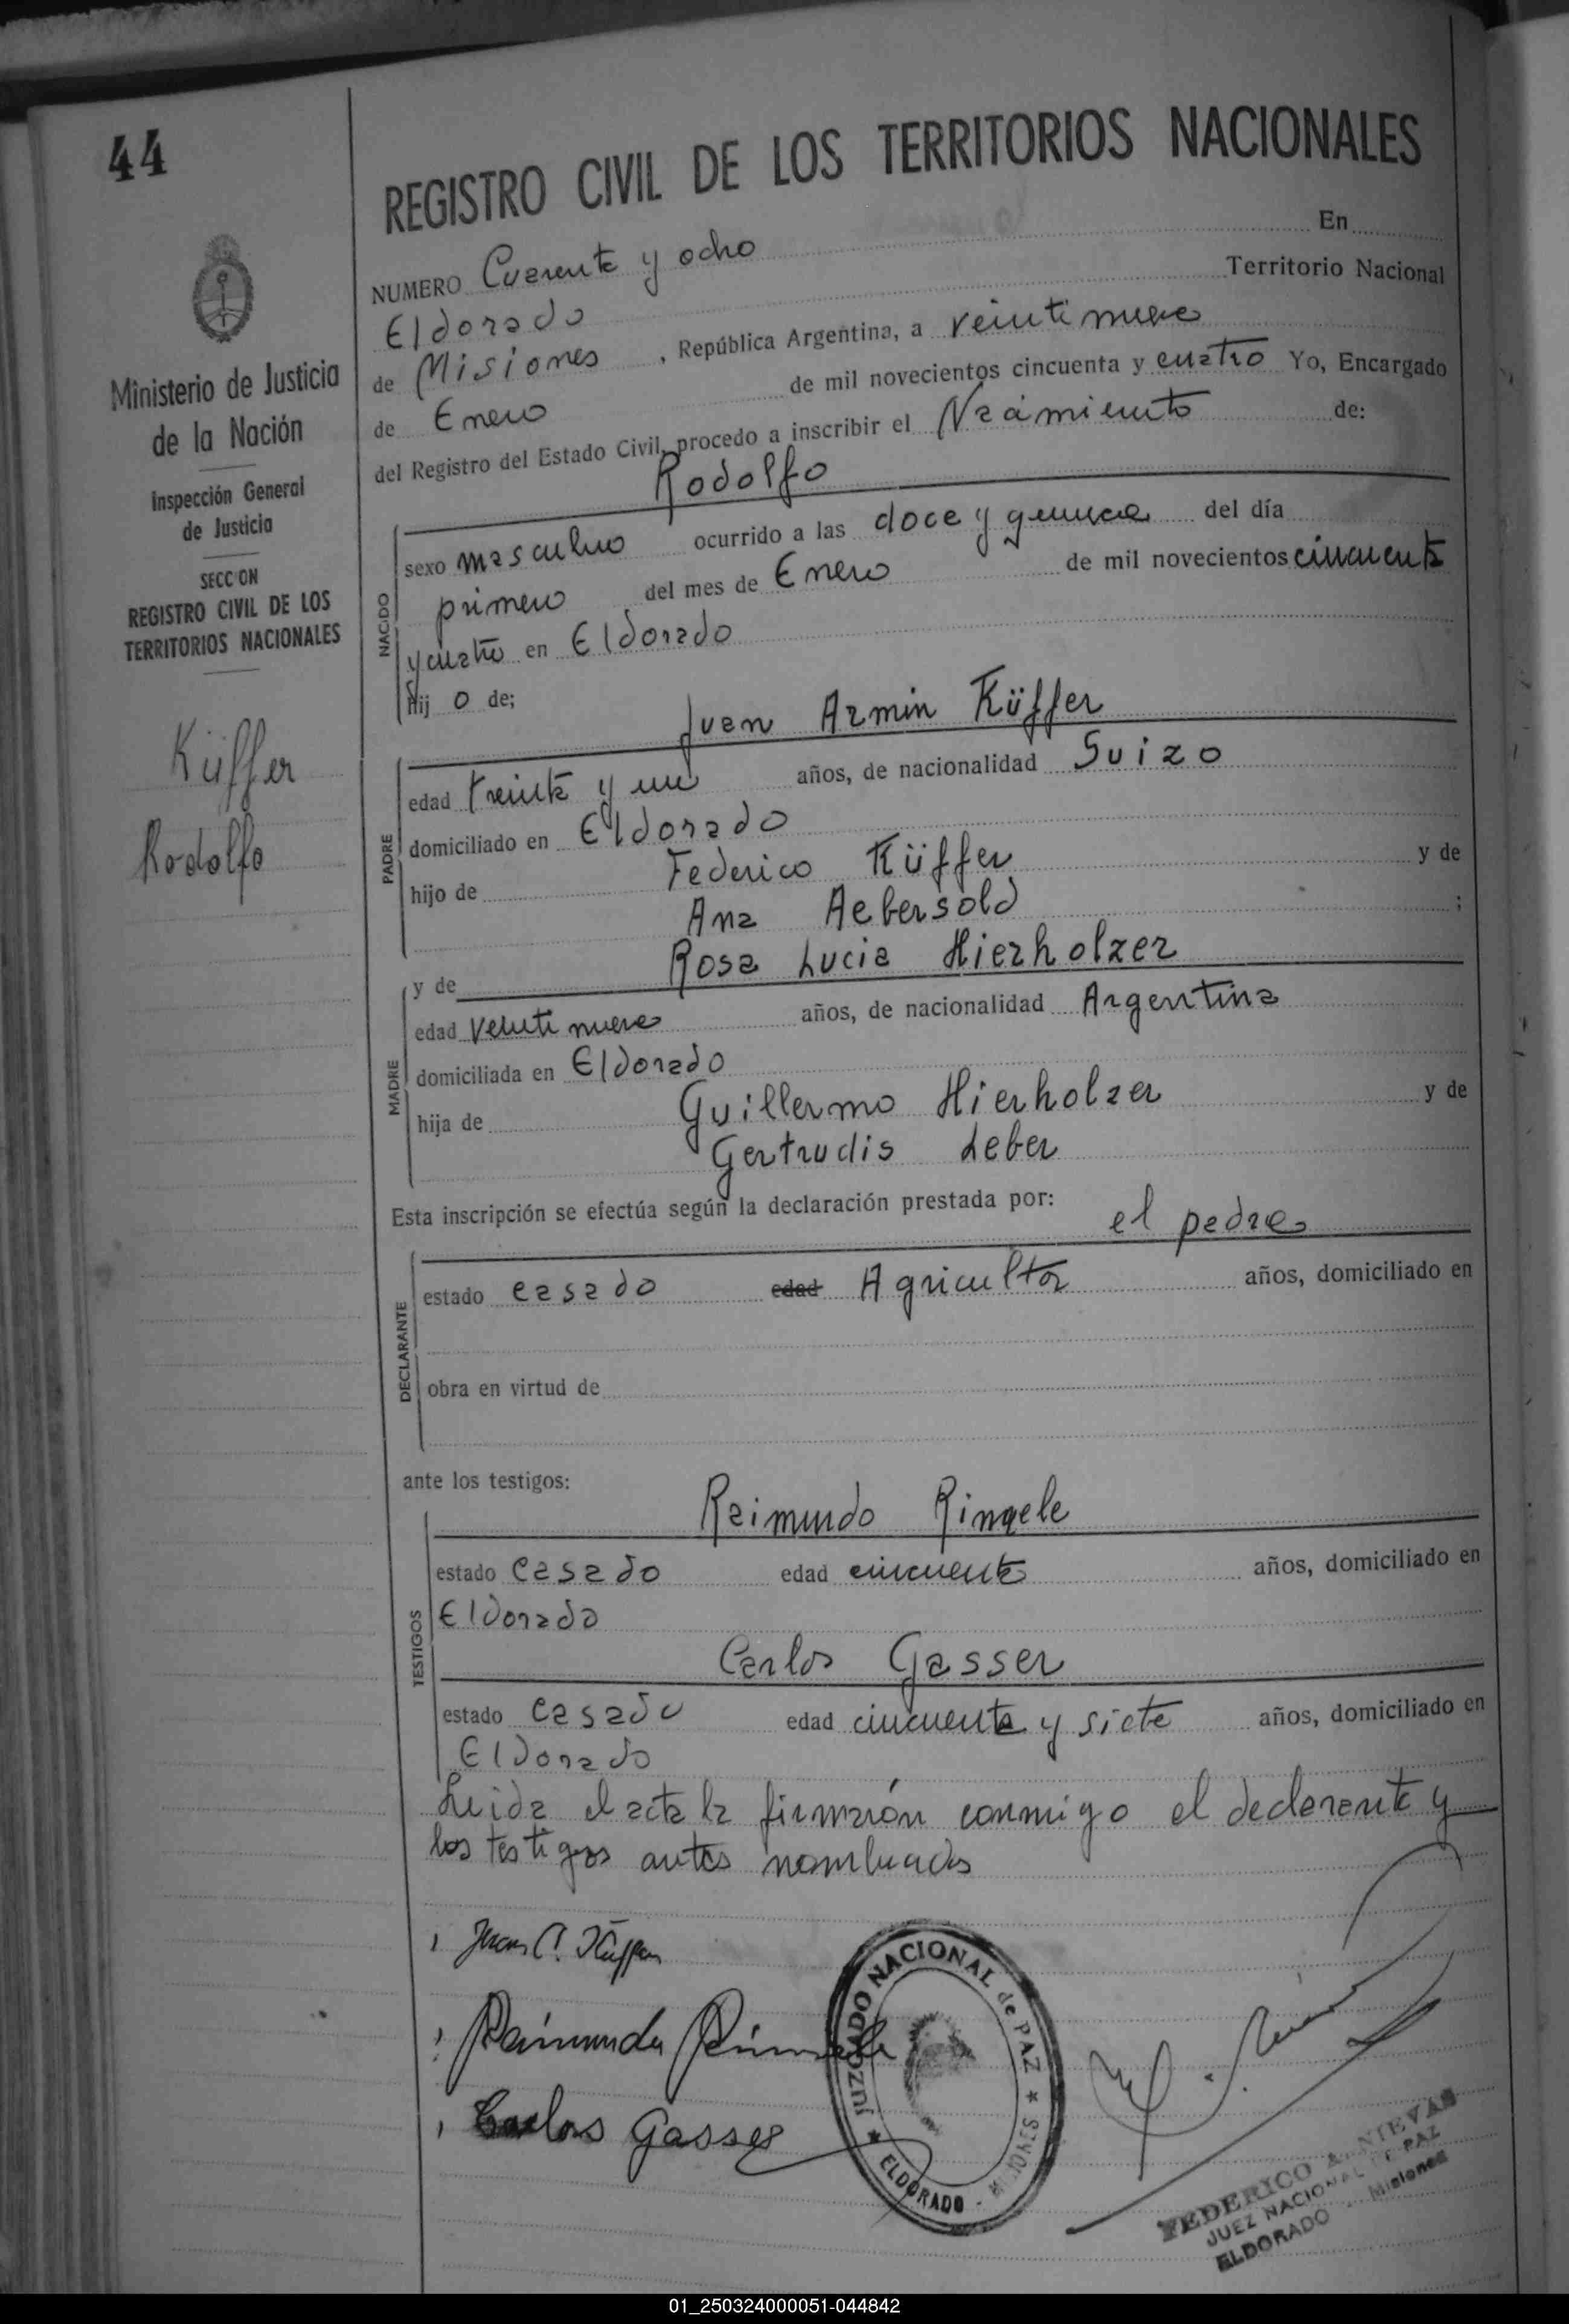 44
REGISTRO CIVIL DE LOS TERRITORIOS NACIONALES
NUMERO Cuarenta y ocho En
Eldorado Territorio Nacional
de Misiones , República Argentina, a veintinueve
de Enero de mil novecientos cincuenta y cuatro Yo, Encargado
del Registro del Estado Civil, procedo a inscribir el Nacimiento de:
Rodolfo
NACIDO
sexo masculino ocurrido a las doce y quince del día
primero del mes de Enero de mil novecientos cincuenta
y cuatro en Eldorado
hij o de;
Juan Armin Küffer
PADRE
edad treinta y un años, de nacionalidad Suizo
domiciliado en Eldorado
hijo de Federico Küffer y de
Ana Aebersold ;
y de Rosa Lucia Hierholzer
MADRE
edad veintinueve años, de nacionalidad Argentina
domiciliada en Eldorado
hija de Guillermo Hierholzer y de
Gertrudis Leber
Esta inscripción se efectúa según la declaración prestada por:
el padre
DECLARANTE
estado casado edad Agricultor años, domiciliado en
obra en virtud de
ante los testigos:
Raimundo Ringele
TESTIGOS
estado casado edad cincuenta años, domiciliado en
Eldorado
Carlos Gasser
estado casado edad cincuenta y siete años, domiciliado en
Eldorado
Leida el acta la firmarón conmigo el declarante y
los testigos antes nombrados
Ministerio de Justicia
de la Nación
Inspección General
de Justicia
SECCION
REGISTRO CIVIL DE LOS
TERRITORIOS NACIONALES
Küffer
Rodolfo
Juan A. Küffer
Raimundo
Carlos Gasser
JUZGADO NACIONAL de PAZ
ELDORADO - MISIONES
FEDERICO A. NIEVAS
JUEZ NACIONAL DE PAZ
ELDORADO - Misiones
01_250324000051-044842